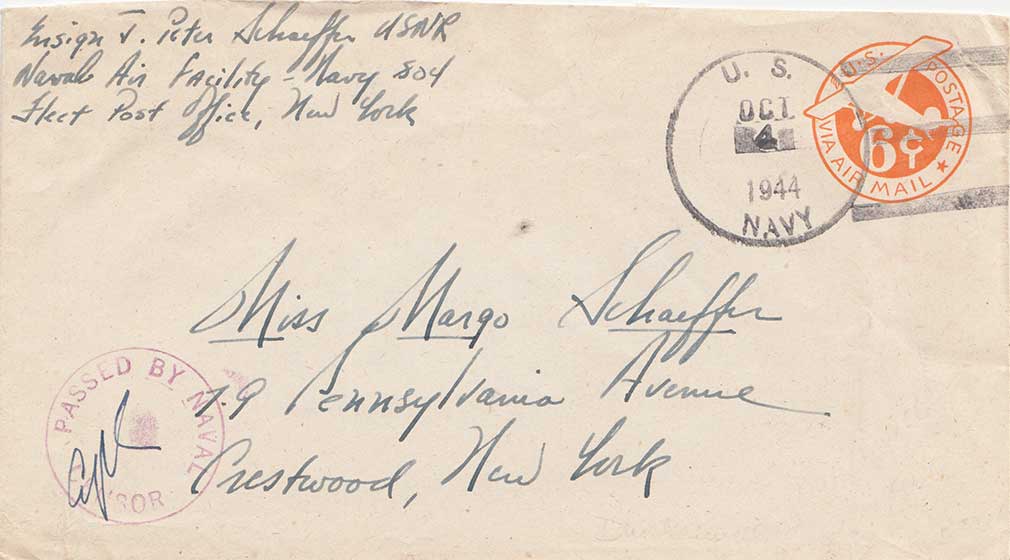 Ensign J. Peter Schaeffer USNR
Naval Air Facility - Navy 804
Fleet Post Office, New York
U. S.
OCT
4
1944
NAVY
U.S. POSTAGE
6¢
VIA AIR MAIL
Miss Margo Schaeffer
79 Pennsylvania Avenue
Crestwood, New York
PASSED BY NAVAL